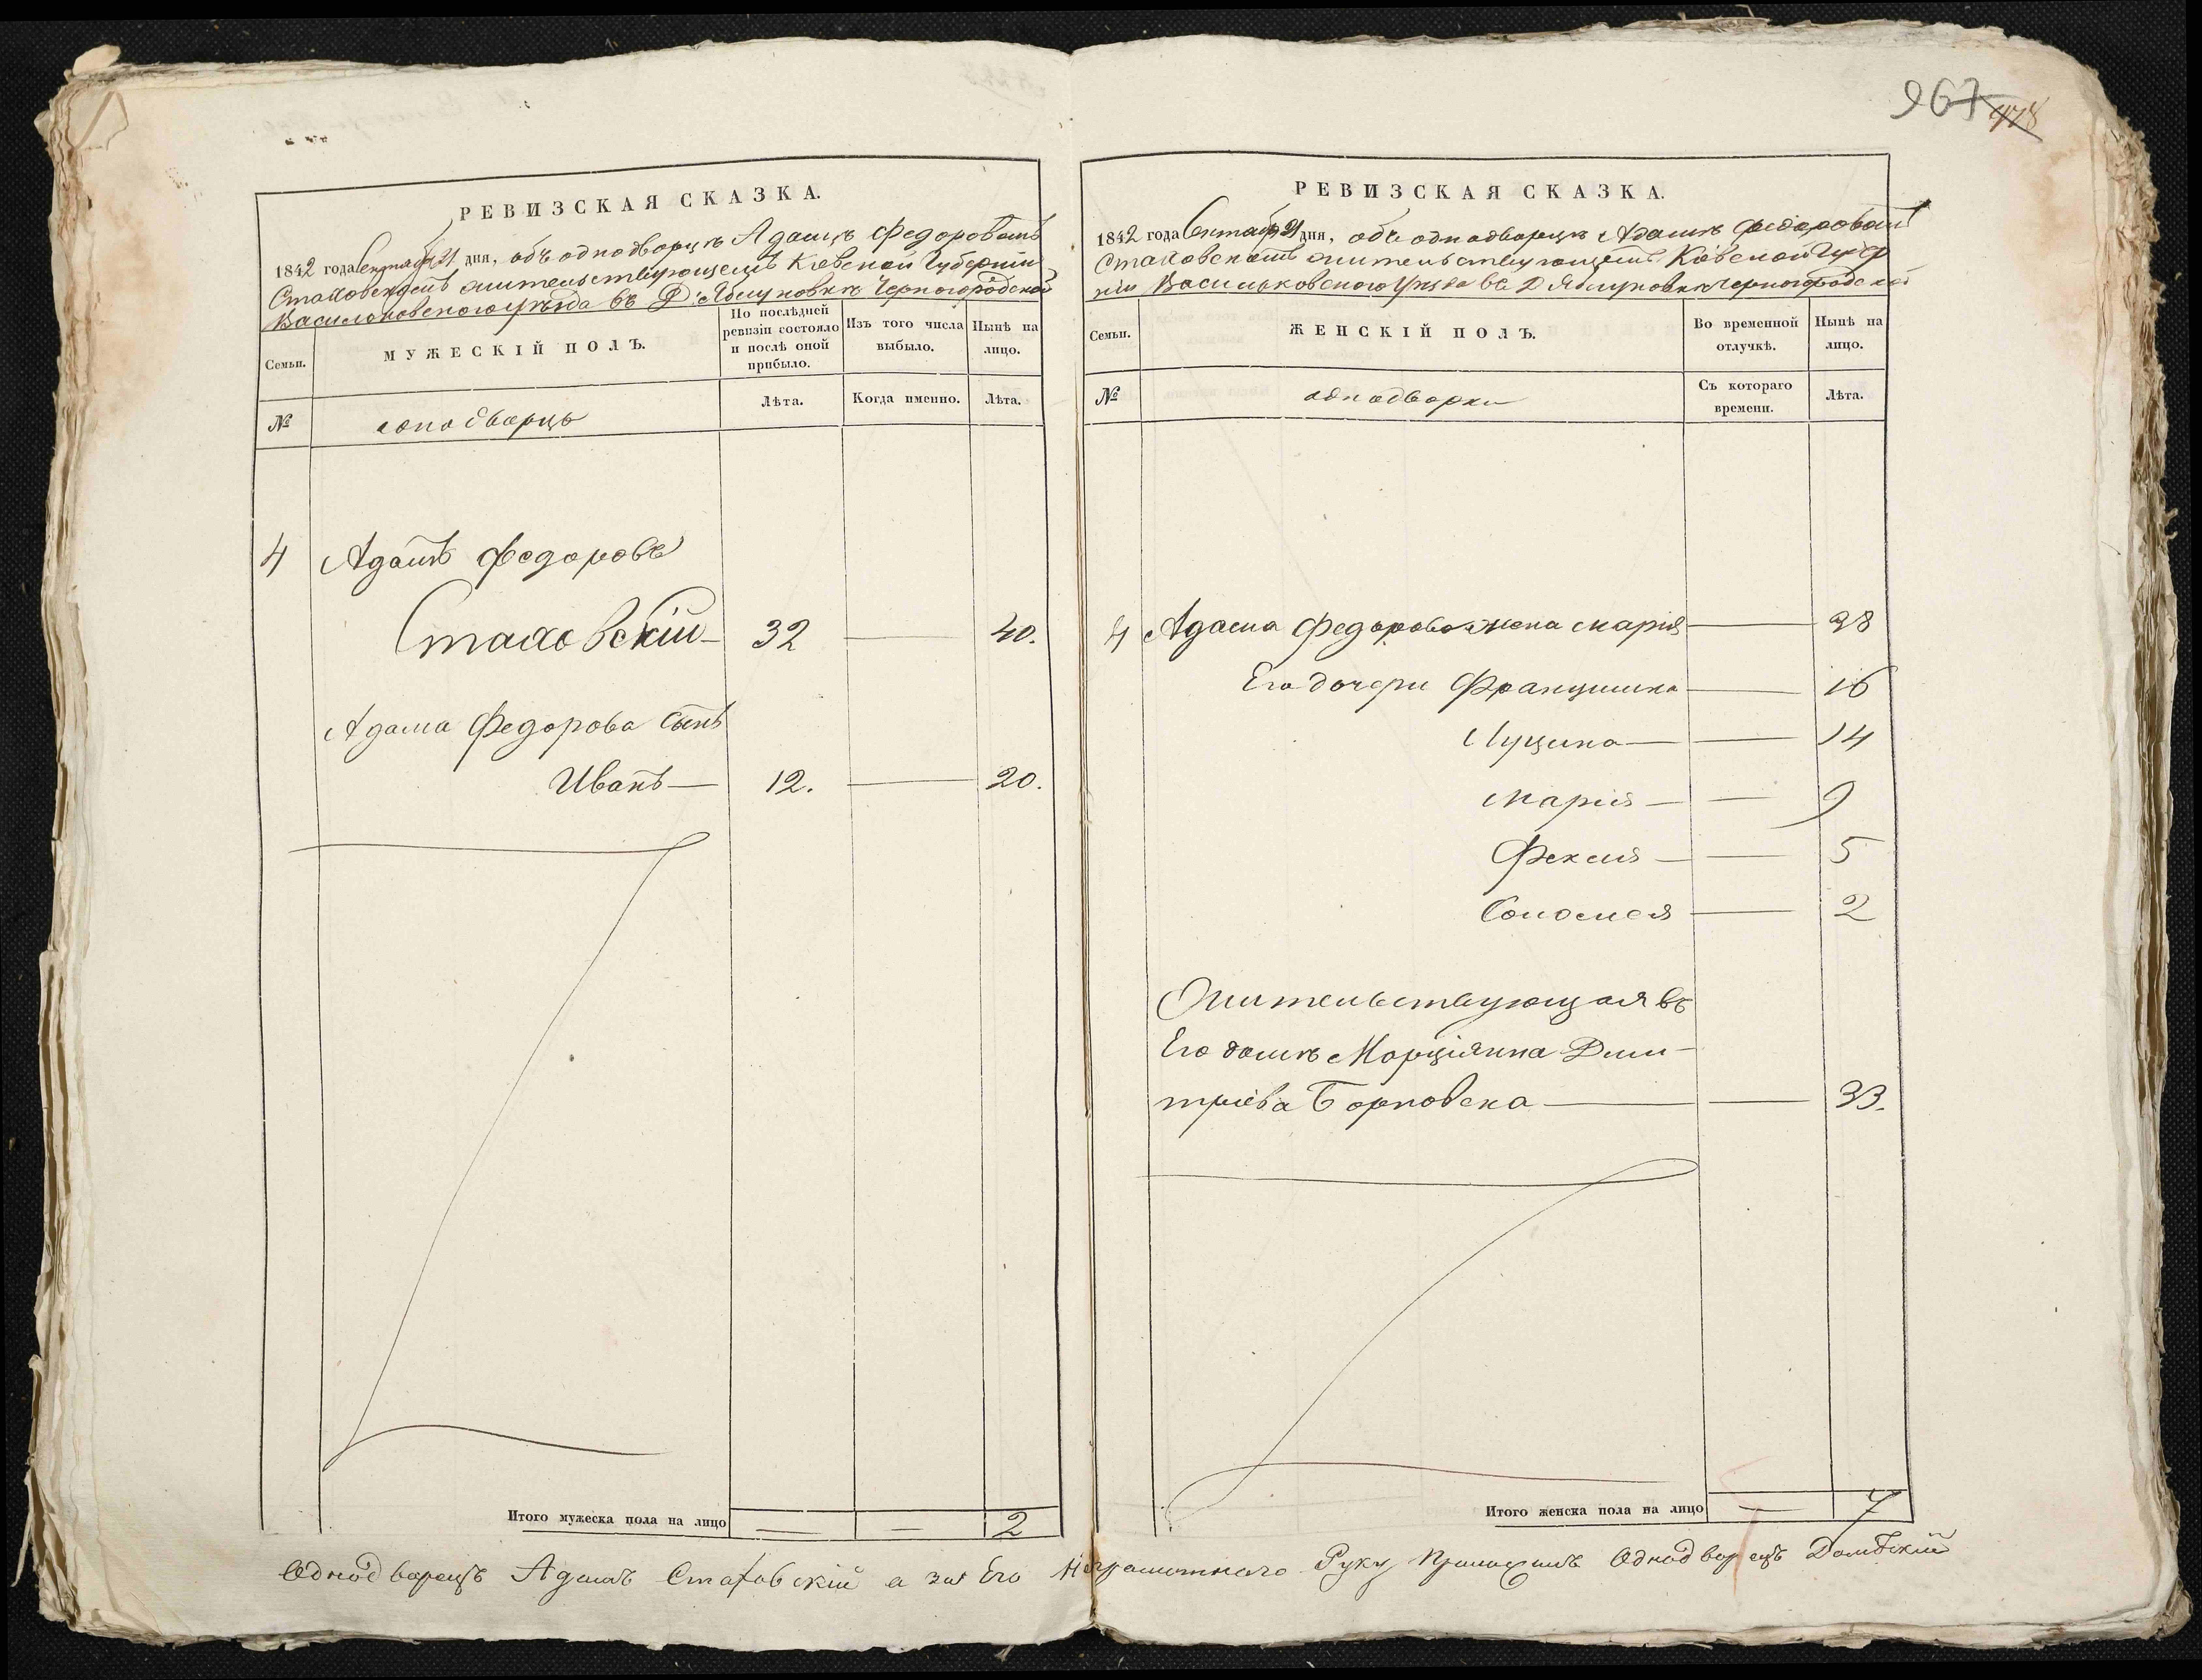 967 478
РЕВИЗСКАЯ СКАЗКА.
1842 года Сентября 21 дня, объ однодворцѣ Адамѣ Федоровомъ
Стаховскомъ жительствующемъ Кіевской Губерніи
Васильковского уѣзда въ Д: Яблуновкѣ Черногородской
Семьи.
МУЖЕСКІЙ ПОЛЪ.
По послѣдней ревизіи состояло и послѣ оной прибыло.
Изъ того числа выбыло.
Нынѣ на лицо.
№
однодворцы
Лѣта.
Когда именно.
Лѣта.
4 Адамъ Федоровъ
Стаховскій 32 — 40.
Адама Федорова сынъ
Иванъ — 12. — 20.
Итого мужеска пола на лицо — — 2
РЕВИЗСКАЯ СКАЗКА.
1842 года Сентября 21 дня, объ однодворцѣ Адамѣ Федоровомъ
Стаховскомъ жительствующемъ Кіевской Губер
ніи Васильковского Уѣзда въ Д Яблуновкѣ Черногородской
Семьи.
ЖЕНСКІЙ ПОЛЪ.
Во временной отлучкѣ.
Нынѣ на лицо.
№
однодворки
Съ котораго времени.
Лѣта.
4 Адама Федорова жена Марія — 38
Его дочери Францишка — 16
Луцина — — 14
Марія — — 9
Фекла — — 5
Соломея — 2
Жительствующая въ
Его домѣ Марціянна Дми-
тріева Борковска — — 33.
Итого женска пола на лицо — 7
Однодворецъ Адамъ Стаховскій а за Его Неграмотного Руку Приложилъ Однодворецъ Домбскій